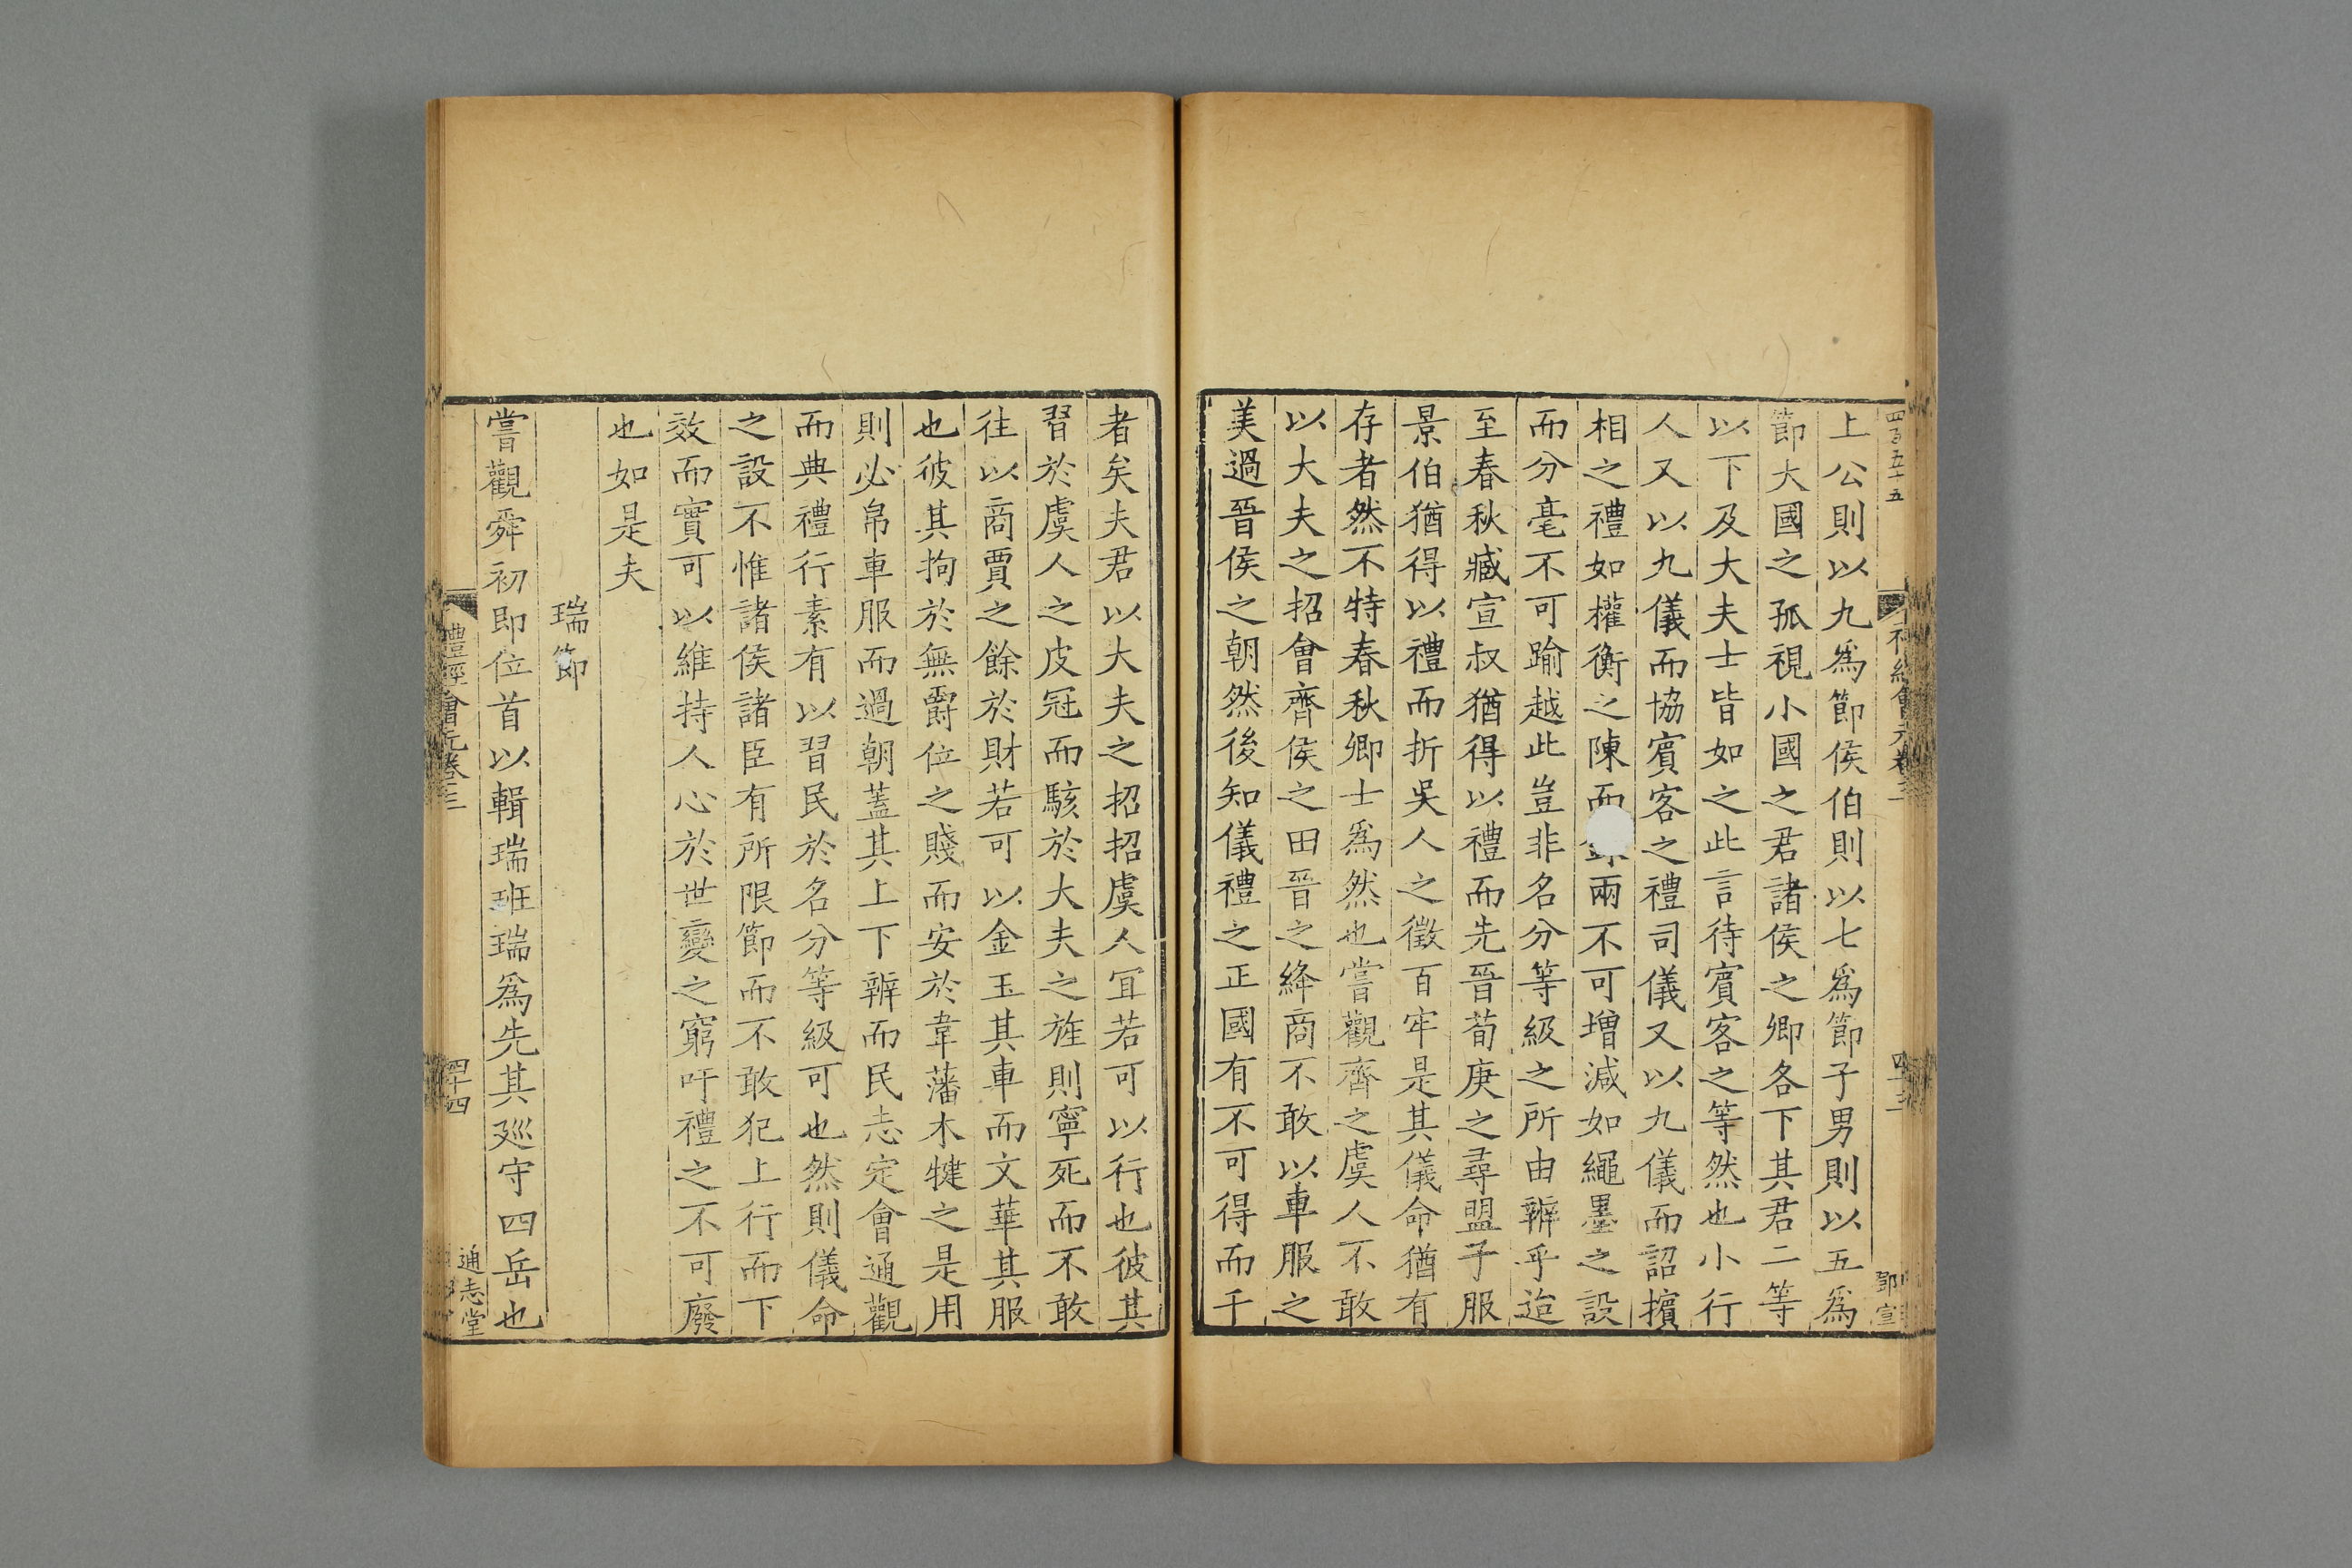 四百五十五
上公則以九爲節侯伯則以七爲節子男則以五爲
節大國之孤視小國之君諸侯之卿各下其君二等
以下及大夫士皆如之此言待賓客之等然也小行
人又以九儀而協賓客之禮司儀又以九儀而詔擯
相之禮如權衡之陳而兩不可增減如繩墨之設
而分毫不可踰越此豈非名分等級之所由辨乎迨
至春秋臧宣叔猶得以禮而先晉荀庚之尋盟子服
景伯猶得以禮而折吳人之徵百牢是其儀命猶有
存者然不特春秋卿士爲然也嘗觀齊之虞人不敢
以大夫之招會齊侯之田晉之絳商不敢以車服之
美過晉侯之朝然後知儀禮之正國有不可得而干
者矣夫君以大夫之招招虞人冝若可以行也彼其
習於虞人之皮冠而駭於大夫之旌則寧死而不敢
往以商賈之餘於財若可以金玉其車而文華其服
也彼其拘於無爵位之賤而安於韋藩木楗之是用
則必帛車服而過朝蓋其上下辨而民志定會通觀
而典禮行素有以習民於名分等級可也然則儀命
之設不惟諸侯諸臣有所限節而不敢犯上行而下
效而實可以維持人心於世變之窮吁禮之不可廢
也如是夫
瑞節
嘗觀舜初即位首以輯瑞班瑞爲先其廵守四岳也
禮經會元卷三
四十四
通志堂